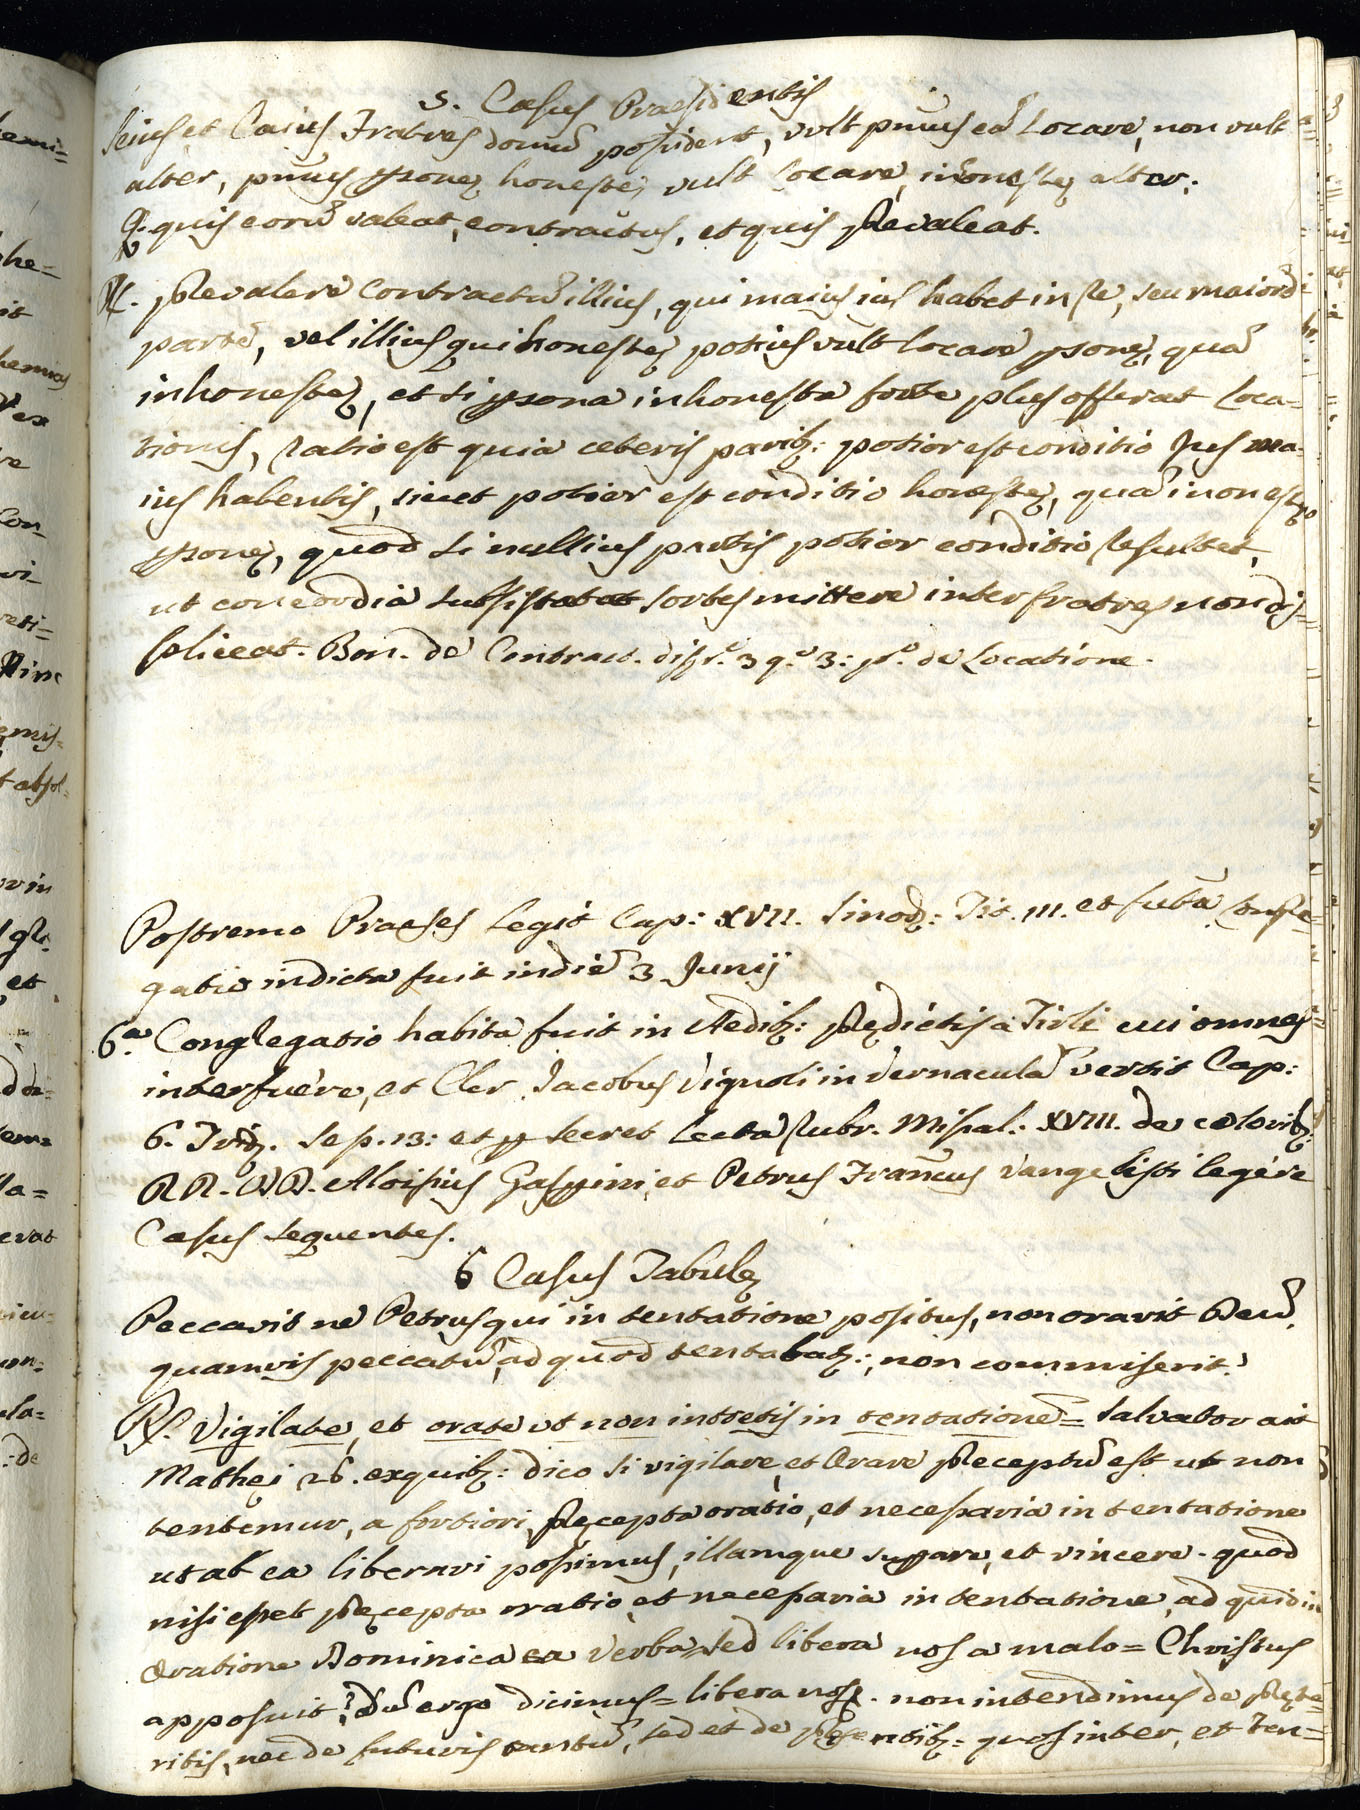 5. Casus Praesidentis
Seius et Caius Fratres domũ possident, vult primus eã Locare, non vult
alter, primus psonę honestę vult locare, inonestę alter:
Q. quis eorũ valeat contractus, et quis prevaleat.
R. Prevalere contractũ illius, qui maius ius habet in re, seu maiorẽ
partẽ, vel illius qui honestę potius vult locare psonę, quã
inhonestę, et si psona inhonesta forte plus offerat loca-
tionis, ratio est quia ceteris paribȝ: potior est conditio Jus ma-
ius habentis, sicut potior est conditio honestę, quã inonestę
psonę, quod si nullius partis potior conditio resultet,
ut concordia subsistat sortes mittere inter fratres non di-
spliceat. Bon. de Contract. disp.ᵉ 3 q.ᵉ 3: pᵒ. de Locatione.
Postremo Praeses legit Cap: XVII. Sinod: Tit. III. et futũra Congre-
gatio indicta fuit in diẽ 3 Junij
6.ª Congregatio habita fuit in Aedibȝ: prędictis a Tirli cui omnes
interfuere, et Cler. Jacobus Vignoli in vernaculã vertit Cap:
6. Trid. Sep. 13: et p secret lecta Rubr. Missal: XVIII. de coloribȝ:
RR. DD. Aloisius Gasperini, et Petrus Francus Vangelisti legére
Casus sequentes.
6 Casus Tabulę
Peccavit ne Petrus qui in tentatione positus, non oravit Deũ,
quamvis peccatũ, ad quod tentabatȝ:, non commiserit?
R. Vigilate, et orate ut non intretis in tentationẽ = Salvator ait
Mathęi 26. ex quibȝ: dico si vigilare, et Orare preceptũ est ut non
tentemur, a fortiori pręcepta oratio, et necessaria in tentatione
ut ab ea liberari possimus, illamque supare, et vincere. quod
nisi esset pręcepta oratio et necessaria in tentatione, ad quid in
Oratione Dominica ea verba, sed libera nos a malo = Christus
apposuit? dũ ergo dicimus = libera nos. non intendimus de pręte-
ritis, nec de futuris tantũ, sed et de pręsentibȝ: quos inter, et ten-